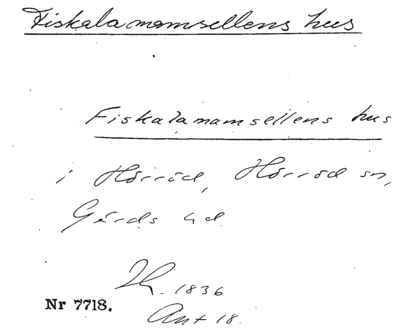 Fiskalamamsellens hus
Fiskalamamsellens hus
i Hörröd, Hörröd sn,
Gärds hd
Th. 1836
Nr 7718.
Ant 18.